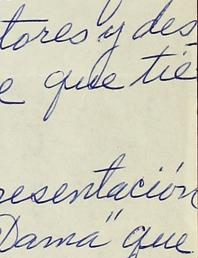 tores y des
e que tie
resentación
Dama" que